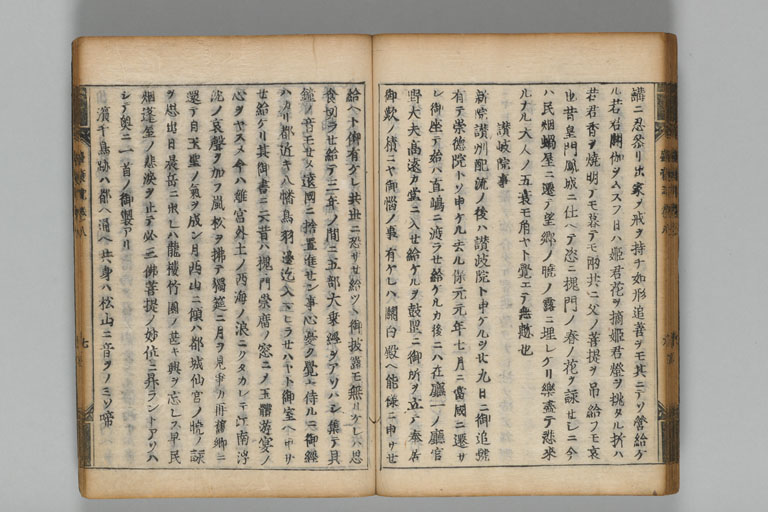 講ニ忍参リ出家ノ戒ヲ持チ如形追善ヲモ其ニテソ営給ケ
ル若君閼伽ヲムスフ日ハ姫君花ヲ摘姫君燈ヲ挑タル折ハ
若君香ヲ焼明テモ暮テモ兩共ニ父ノ菩提ヲ吊給フモ哀
也昔皇門鳳城ニ仕ヘテ恣ニ槐門ノ春ノ花ヲ詠セシニ今
ハ民烟蝸屋ニ遷テ望郷ノ曉ノ露ニ埋レケリ樂盡テ悲来
ルナル大人ノ五衰モ角ヤト覺エテ無慙也
讃岐院事
新院讃州配流ノ後ハ讃岐院ト申ケルヲ廿九日ニ御追號
有テ崇徳院トソ申ケル去ル保元元年七月ニ當國ニ遷サ
レ御座テ始ハ直嶋ニ渡ラセ給ケルカ後ニハ在廳一ノ廳官
野大夫高遠カ堂ニ入セ給ケルヲ鼓岡ニ御所ヲ立テ奉居
御歎ノ積ニヤ御惱ノ事有ケレハ關白殿ヘ能樣ニ申サセ
給ヘト御有ケレ共世ニ恐サセ給ツヽ御披露モ無リケレハ思
食切ラセ給テ三年ノ間ニ五部大乗經ヲアソハシ集テ貝
鐘ノ音モセヌ遠國ニ捨置進セン事心憂ク覺エ侍ルニ御經
ハカリ都近キ八幡鳥羽邊迄入マヒラセハヤト御室ヘ申サ
セ給ケリ其御書ニ云昔ハ槐門崇廣ノ窓ニノ玉體遊宴ノ
心ヲヤスメ今ハ離宮外土ノ西海ノ浪ニウタカレテ江南浮
沈ノ哀聲ヲ加フ嵐松ヲ拂テ獨筵ニ月ヲ見事カ再舊郷ニ
還テ自玉聖ノ氣ヲ成ン月西山ニ傾ハ都城仙宮ノ曉ノ詠
ヲ思出日晨岳ニ出レハ龍樓竹園ノ
キ興ヲ忘レス早民
烟蓬屋ノ悲涙ヲ止テ必三佛菩提ノ妙位ニ昇ラントアソハ
シテ奥ニ一首ノ御製アリ
濱千鳥跡ハ都ヘ通ヘ共身ハ松山ニ音ヲノミソ啼